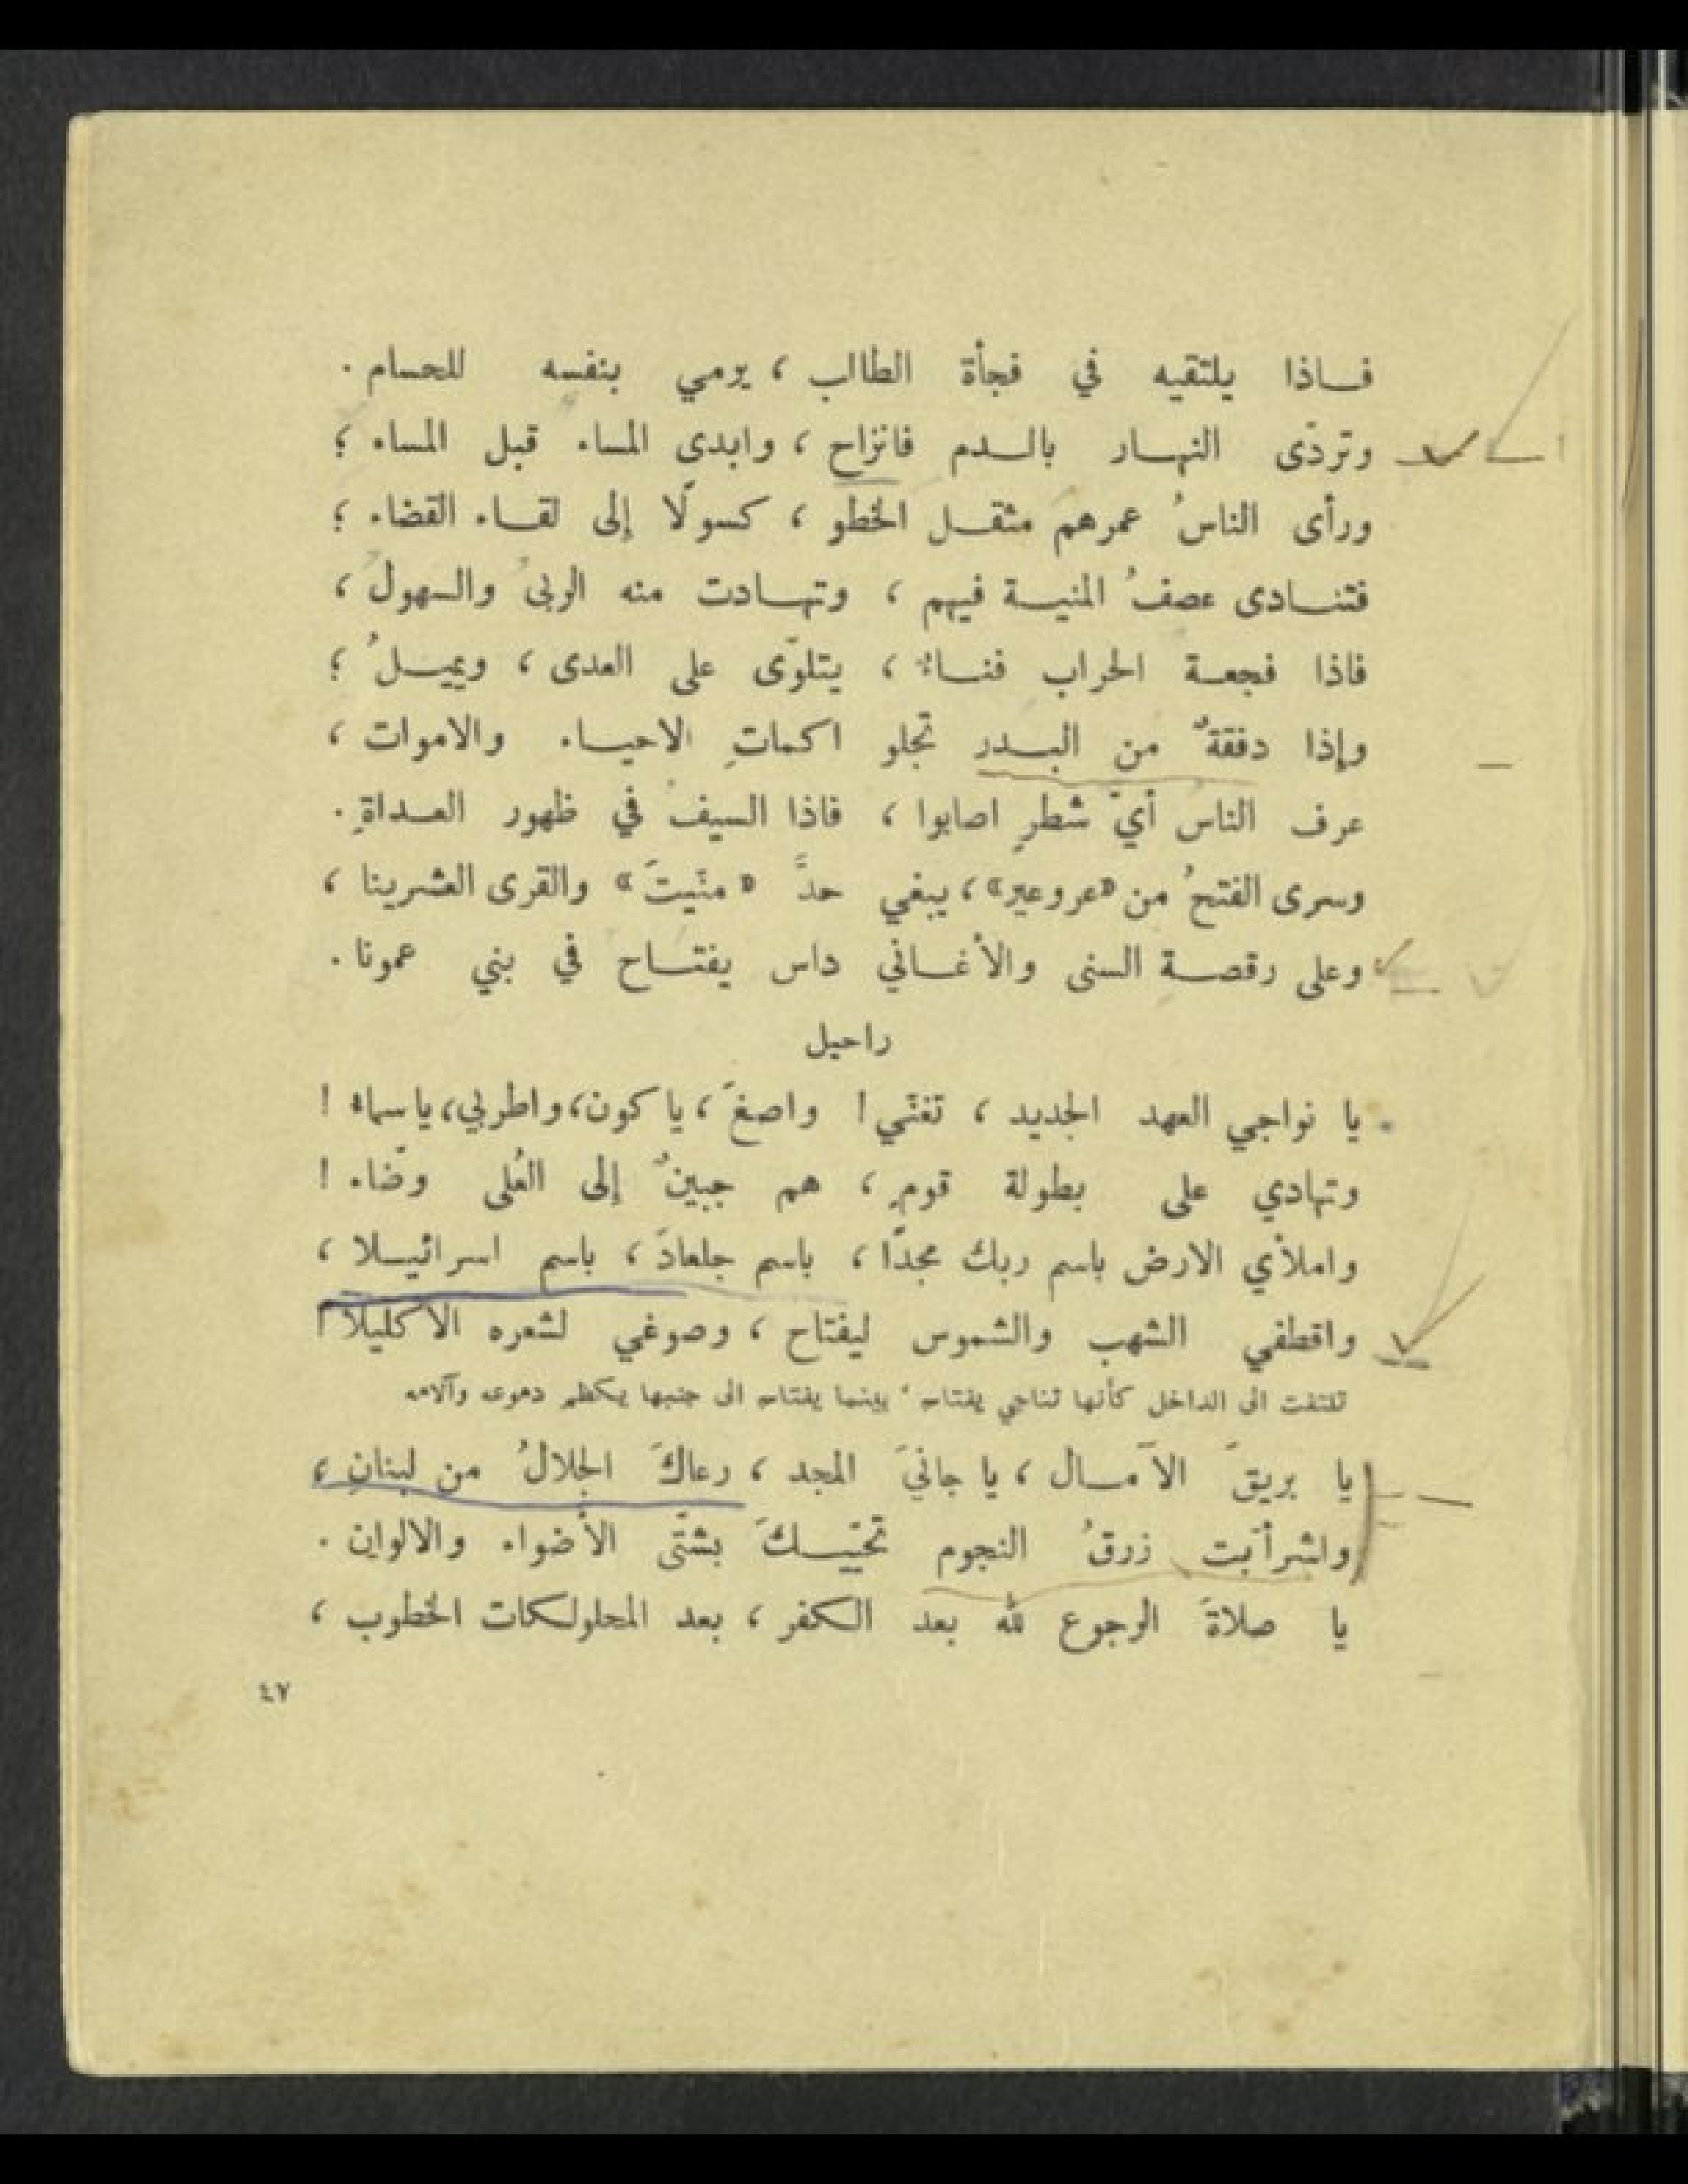 فاذا يلتقيه في فجأة الطالب ، يرمي بنفسه للحسام .
وتردّى النهار بالدم فانزاح ، وابدى المساء قبل المساء ؛
ورأى الناسُ عمرهم مثقل الخطو ، كسولًا إلى لقاء القضاء ؛
فتنادى عصفُ المنية فيهم ، وتهادت منه الربىَ والسهولُ ،
فاذا فجعة الحراب فناءٌ ، يتلوّى على العدى ، ويميلُ ؛
وإذا دفقةٌ من البدر تجلو اكماتِ الاحياء والاموات ،
عرف الناسُ أيّ شطرٍ اصابوا ، فاذا السيفُ في ظهور العداةِ .
وسرى الفتحُ من «عروعير» ، يبغي حدَّ « منّيتَ » والقرى العشرينا ،
وعلى رقصة السنى والأغاني داس يفتاح في بني عمونا .
راحيل
يا نواحي العهد الجديد ، تغنّي ! واصغَ ، يا كون ، واطربي ، يا سماء !
وتهادي على بطولة قومٍ ، هم جبينٌ إلى العُلى وضّاء !
واملأي الارض باسم ربك مجدًا ، باسم جلعادَ ، باسم اسرائيلا ،
واقطفي الشهب والشموس ليفتاح ، وصوغي لشعره الاكليلا !
تلتفت الى الداخل كأنها تناجي يفتاح ، بينما يفتاح الى جنبها يكظم دموعه وآلامه
يا بريقَ الآمال ، يا جانيَ المجد ، رعاكَ الجلالُ من لبنانِ ،
واشرأبّت زرقُ النجوم تحيّيكَ بشتّى الأضواء والالوانِ .
يا صلاةَ الرجوع لله بعد الكفر ، بعد المحلولكات الخطوب ،
٤٧